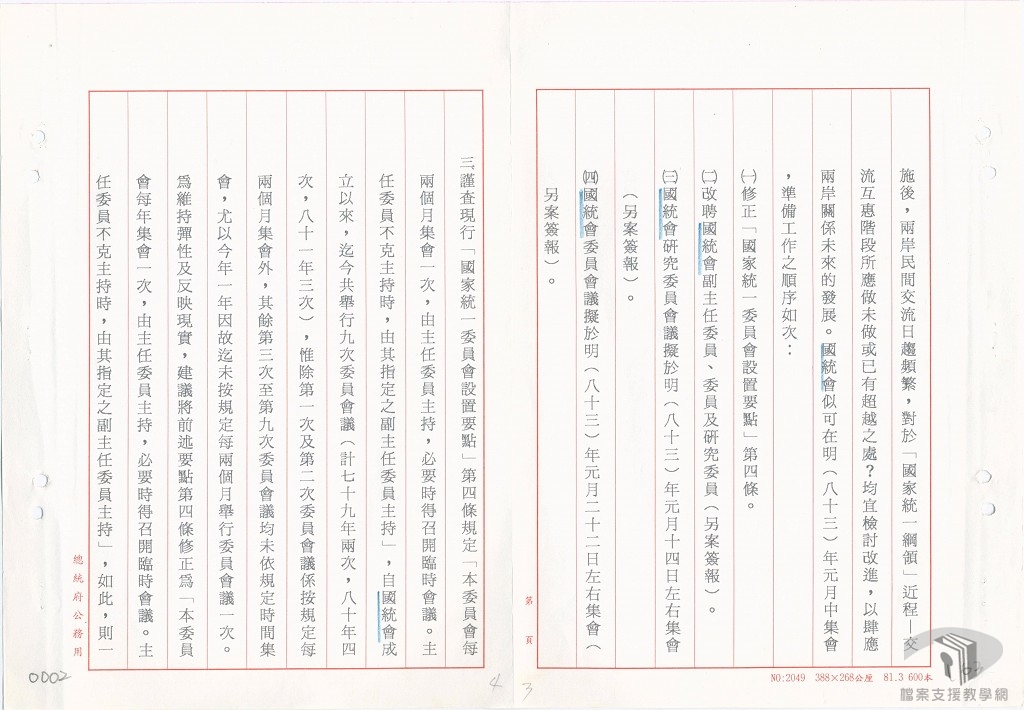 施後，兩岸民間交流日趨頻繁，對於「國家統一綱領」近程—交
流互惠階段所應做未做或已有超越之處？均宜檢討改進，以肆應
兩岸關係未來的發展。國統會似可在明（八十三）年元月中集會
，準備工作之順序如次：
㈠修正「國家統一委員會設置要點」第四條。
㈡改聘國統會副主任委員、委員及研究委員（另案簽報）。
㈢國統會研究委員會議擬於明（八十三）年元月十四日左右集會
（另案簽報）。
㈣國統會委員會議擬於明（八十三）年元月二十二日左右集會（
另案簽報）。
第 頁
NO:2049 388×268公厘 81.3 600本
3
檔案支援教學網
三、謹查現行「國家統一委員會設置要點」第四條規定「本委員會每
兩個月集會一次，由主任委員主持，必要時得召開臨時會議。主
任委員不克主持時，由其指定之副主任委員主持」，自國統會成
立以來，迄今共舉行九次委員會議（計七十九年兩次，八十年四
次，八十一年三次），惟除第一次及第二次委員會議係按規定每
兩個月集會外，其餘第三次至第九次委員會議均未依規定時間集
會，尤以今年一年因故迄未按規定每兩個月舉行委員會議一次。
為維持彈性及反映現實，建議將前述要點第四條修正為「本委員
會每年集會一次，由主任委員主持，必要時得召開臨時會議。主
任委員不克主持時，由其指定之副主任委員主持」，如此，則一
總統府公務用
0002
4